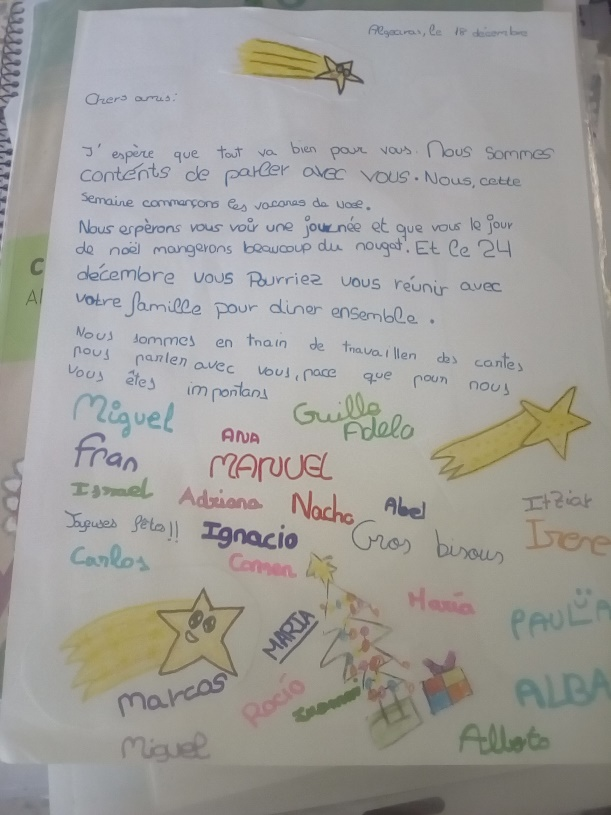 le 18 décembre
Chers amis:
J'espère que tout va bien pour vous. Nous sommes
contents de parler avec vous. Nous, cette
semaine commençons les vacances
Nous espèrons vous voir une journée et que vous le jour
de noël mangerons beaucoup du nougat. Et le 24
décembre vous Pourriez vous réunir avec
votre famille pour diner ensemble.
Nous sommes en train de travailler des cartes
nous parlen avec vous, pace que pour nous
vous êtes importans
Miguel
Guille
Adela
ANA
Fran
MANUEL
Ismael
Adriana
Nacho
Abel
Itziar
fêtes!!
Ignacio
Gros bisous
Irene
Carlos
Carmen
María
MARIA
PAULA
Marcos
Rocío
ALBA
Miguel
C
Al